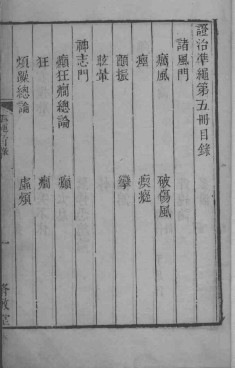 證治準繩第五冊目錄
諸風門
癘風 破傷風
痙 瘈瘲
顫振 攣
眩暈
神志門
癲狂癇總論 癲
狂 癇
煩躁總論 虛煩
一